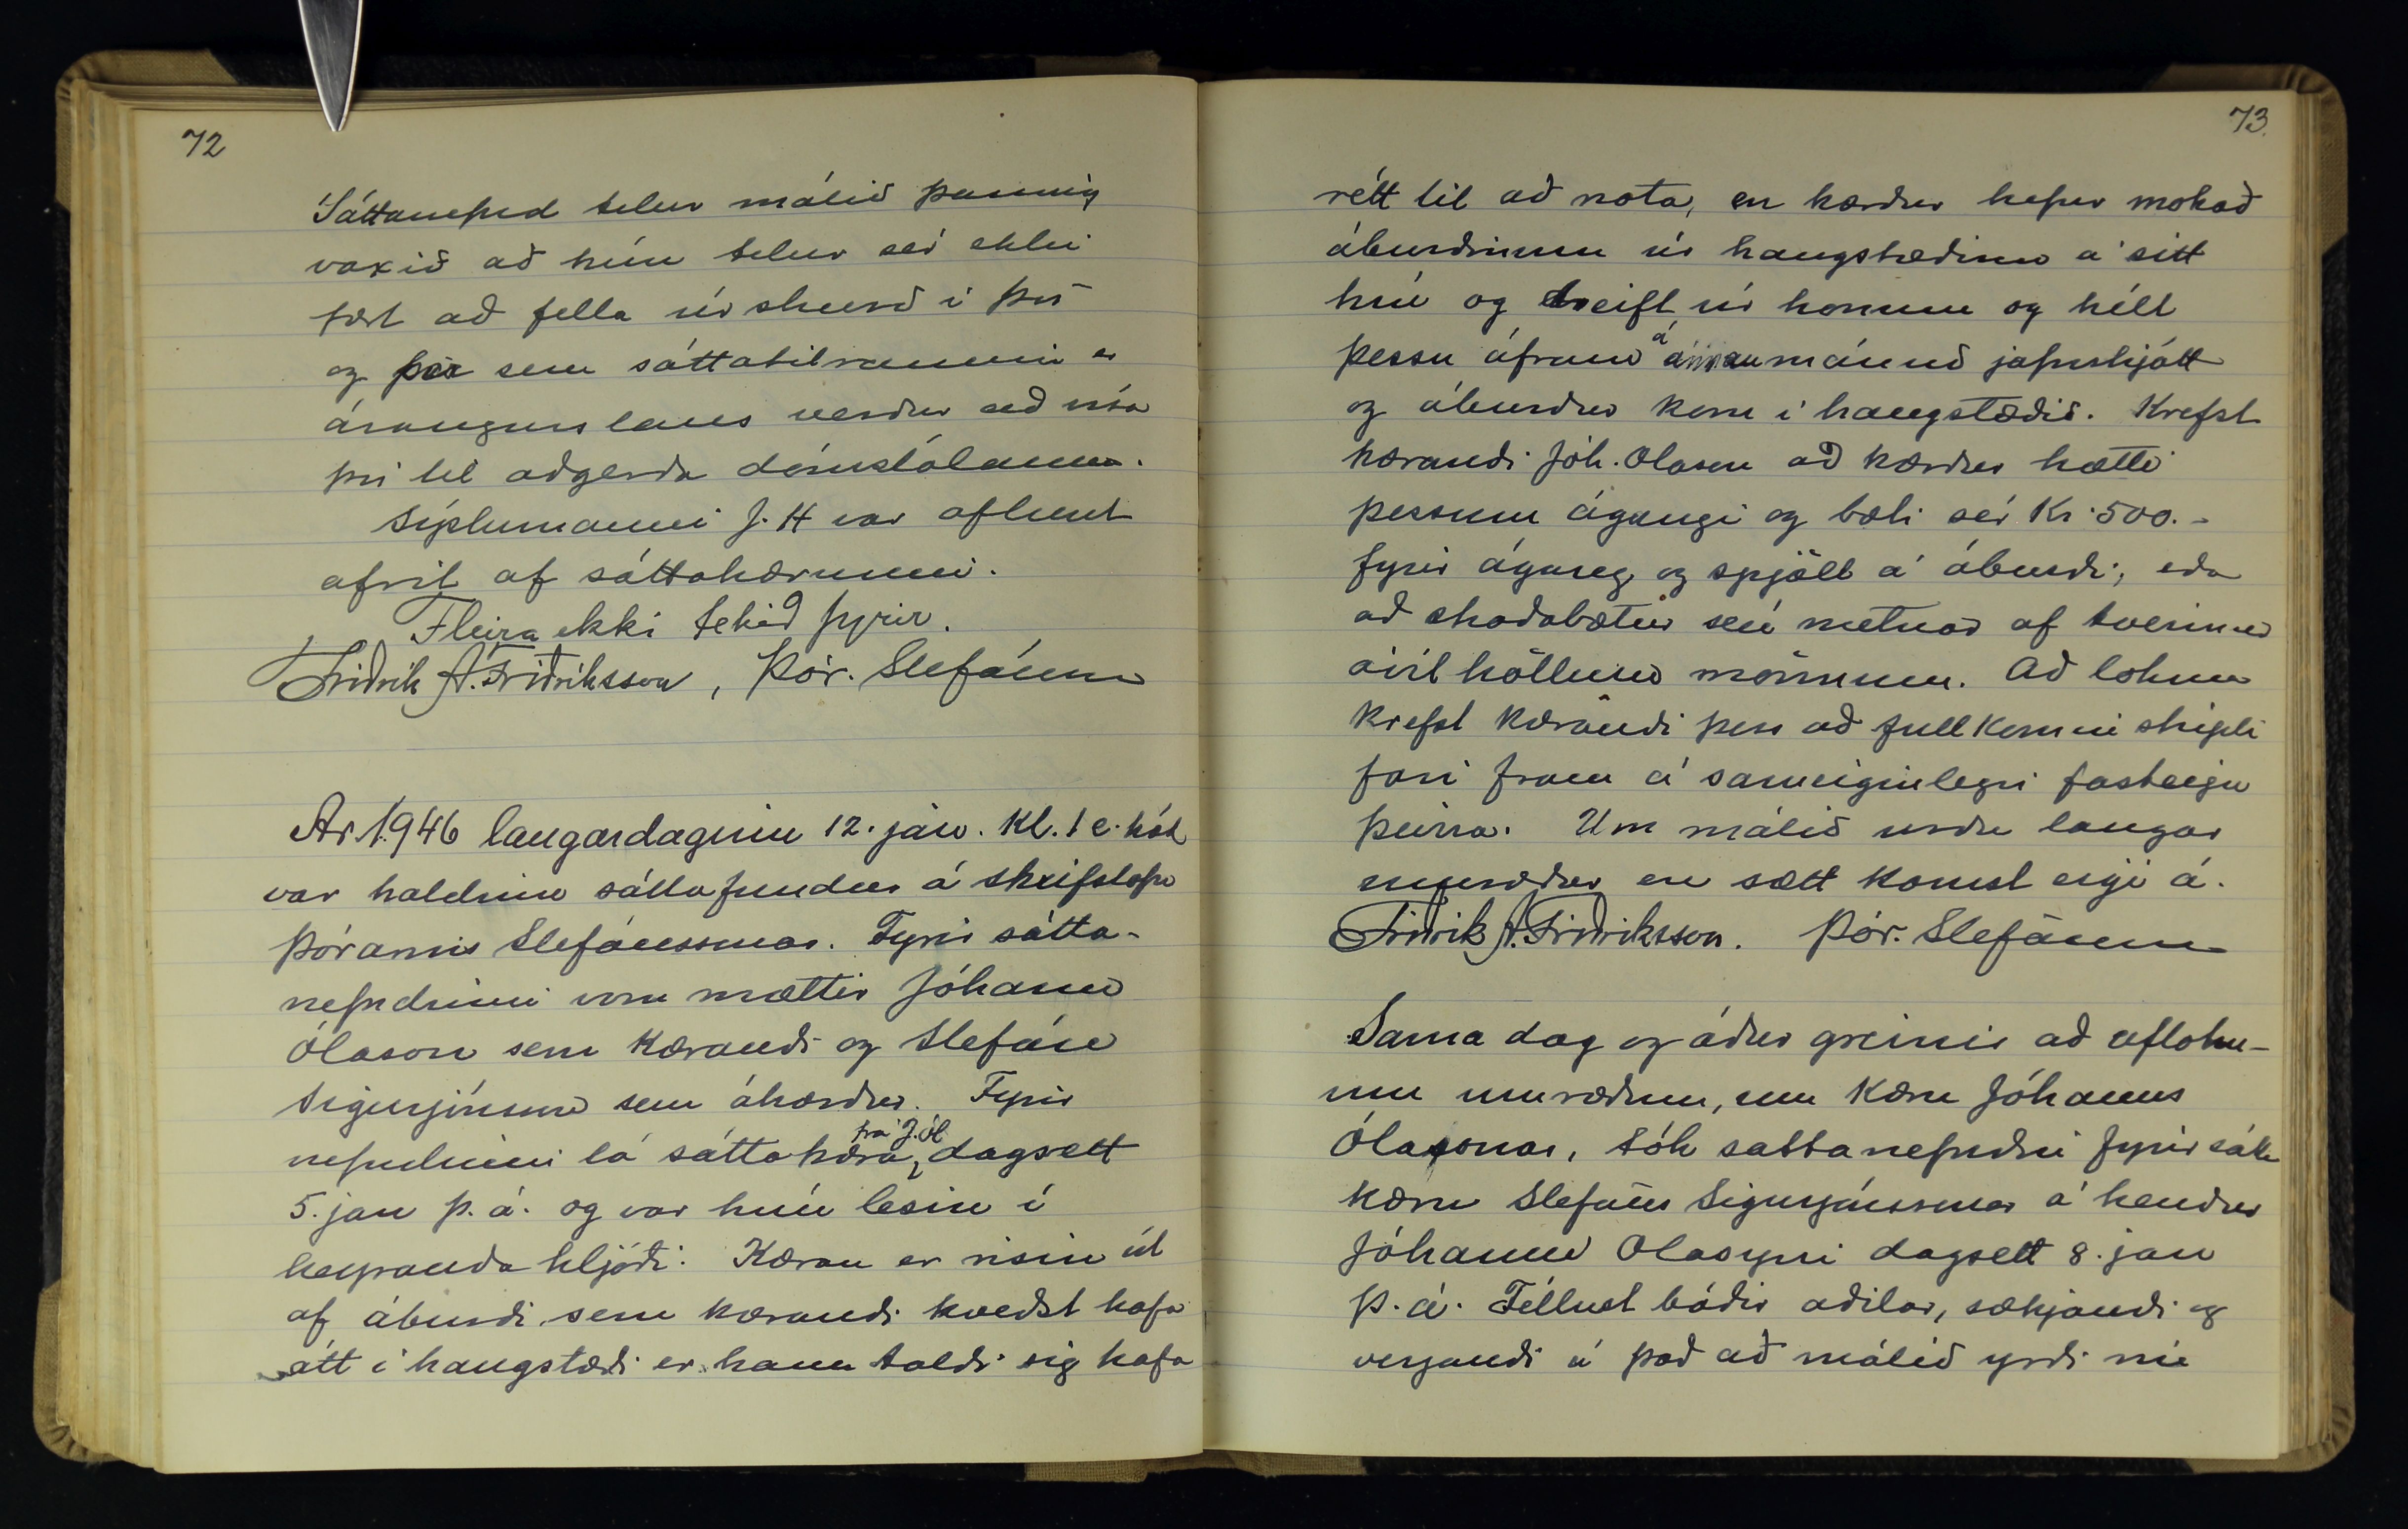 72
Sáttanefnd telur málið þannig
vaxið að hún telur sér ekki
fært að fella úrskurð í því
og þar sem sáttatilraunin er
árangurslaus verður að vísa
því til aðgerða dómstólanna.
Sýslumanni J. H var afhent
afrit af sáttakærunni.
Fleira ekki tekið fyrir.
Friðrik A. Friðriksson, Þór. Stefánsson
Ár 1946 laugardaginn 12. jan. Kl. 1 e. hád
var haldinn sáttafundur á skrifstofu
Þórarins Stefánssonar. Fyrir sátta-
nefndinni voru mættir Jóhann
Ólason sem kærandi og Stefán
Sigurjónsson sem ákærður. Fyrir
nefndinni lá sáttakæra, frá J. Ól dagsett
5. jan þ. á. og var hún lesin í
heyranda hljóði. Kæran er risin út
af áburði sem kærandi kveðst hafa
átt í haugstæði er hann taldi sig hafa
73.
rétt til að nota, en kærður hefur mokað
áburðinum úr haugstæðinu á sitt
hús og dreift úr honum og hélt
þessu áfram á annan mánuð jafnskjótt
og áburður kom í haugstæðið. Krefst
kærandi Jóh. Olason að kærður hætti
þessum ágangi og bæti sér Kr. 500.-
fyrir ágang og spjöll á áburði, eða
að skaðabætur séu metnar af tveimur
óvilhöllum mönnum. Að lokum
krefst kærandi þess að fullkomin skipti
fari fram á sameiginlegri fasteign
þeirra. Um málið urðu langar
umræður en sætt komst eigi á.
Friðrik A. Friðriksson. Þór. Stefánsson
Sama dag og áður greinir að aflokn-
um umræðum, um kæru Jóhanns
Ólasonar, tók sáttanefndin fyrir sátta
kæru Stefáns Sigurjónssonar á hendur
Jóhanni Olasyni dagsett 8. jan
þ. á. Féllust báðir aðilar, sækjandi og
verjandi á það að málið yrði nú